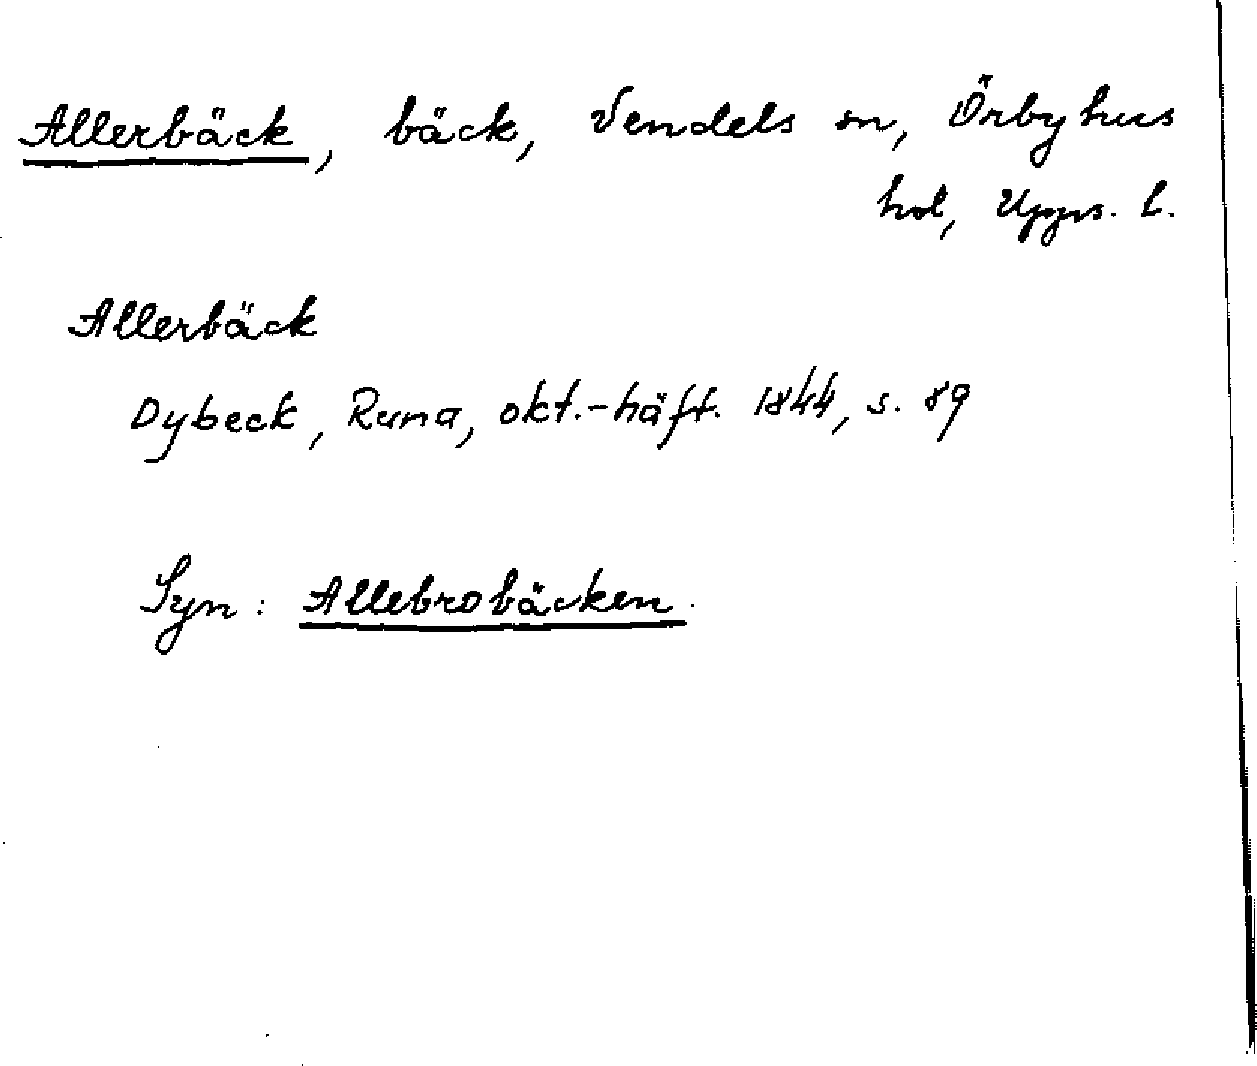 Allerbäck, bäck, Vendels sn, Örbyhus
hd, Upps. l.
Allerbäck
Dybeck, Runa, okt.-häft. 1844, s. 89
Syn: Allebrobäcken.